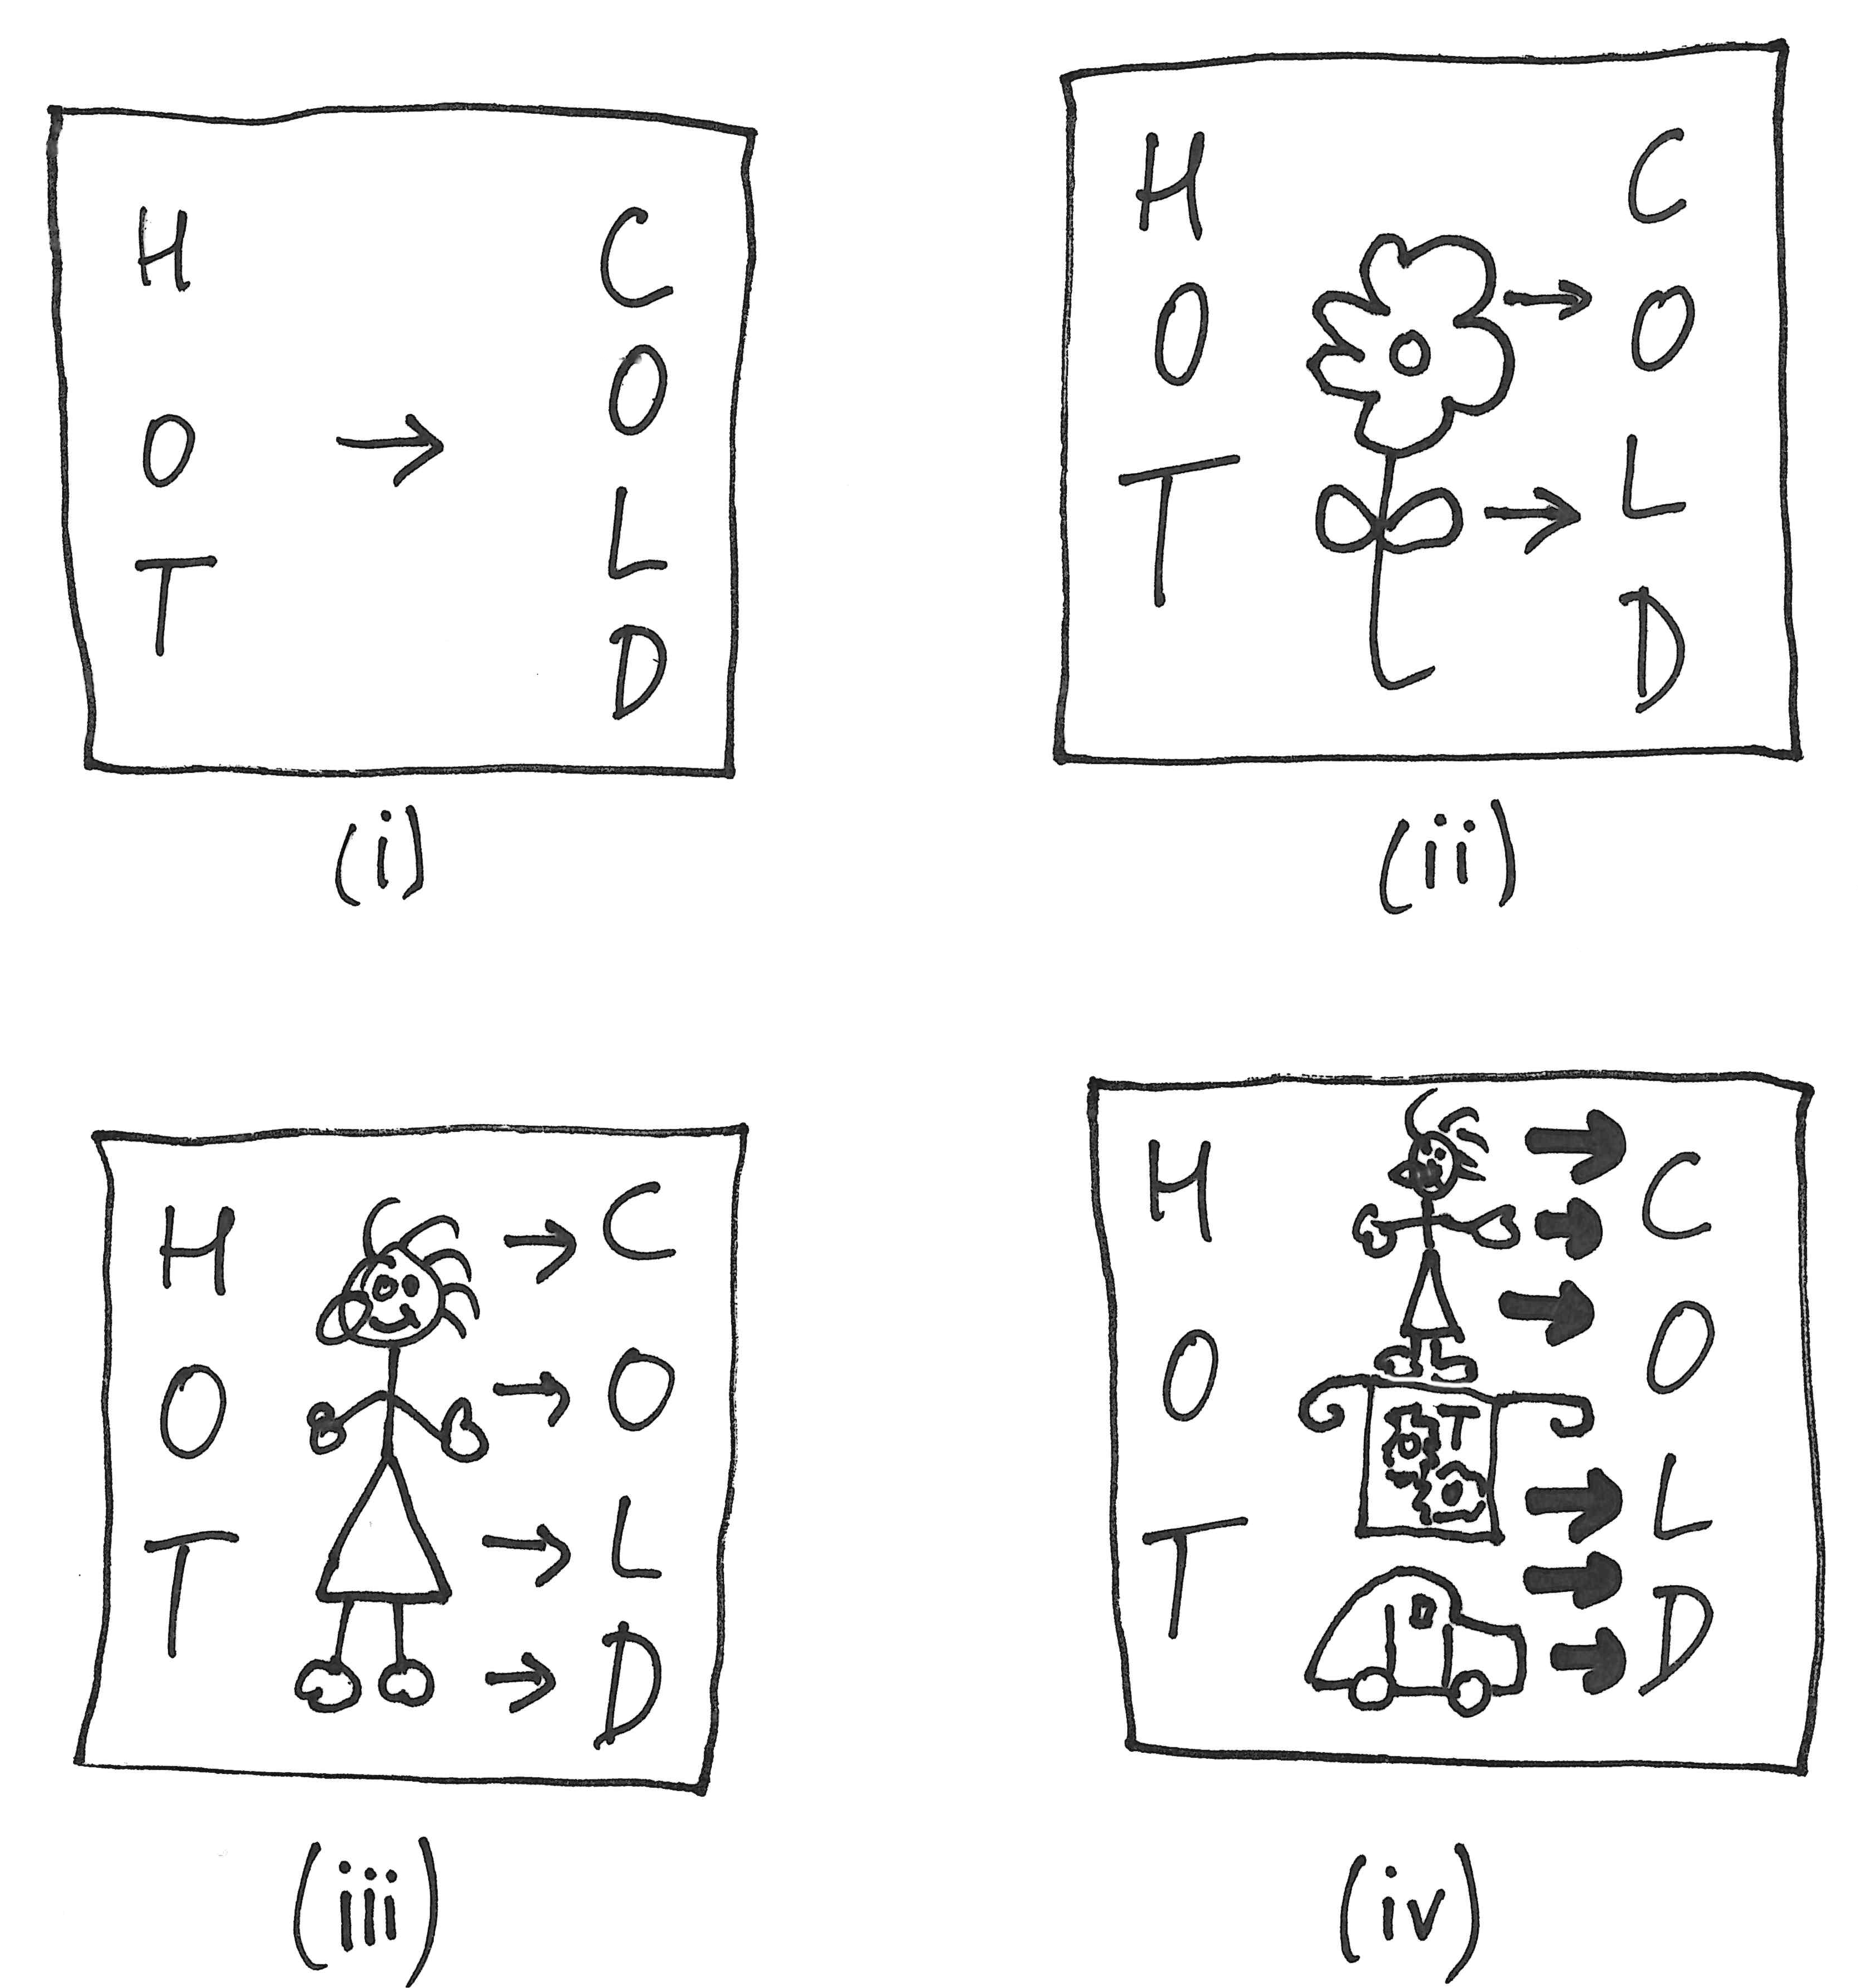 HOT
COLD
(i)
HOT
COLD
(ii)
HOT
COLD
(iii)
HOT
T
COLD
(iv)